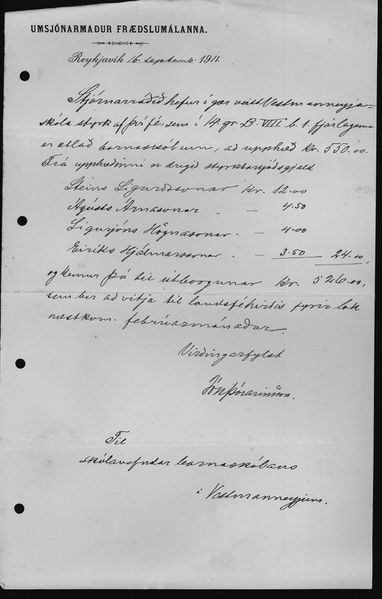 UMSJÓNARMAÐUR FRÆÐSLUMÁLANNA.
Reykjavík 16. septemb. 1911.
Stjórnarráðið hefur í gær veitt Vestmanneyja-
skóla styrk af því fé, sem í 14. gr. B. VIII. b. 1. fjárlaganna
er ætlað barnaskólum, að upphæð kr. 550.00.
Frá upphæðinni er dregið styrktarsjóðsgjald
Steins Sigurðssonar kr. 12.00
Ágústs Árnasonar — 4.50
Sigurjóns Högnasonar — 4.00
Eiríks Hjálmarssonar — 3.50 24.00,
og kemur þá til útborgunar kr. 526.00,
sem ber að vitja til landsféhirðis fyrir lok
næstkom. febrúarmánaðar.
Virðingarfylst
Jón Þórarinsson.
Til
skólanefndar barnaskólans
í Vestmanneyjum.